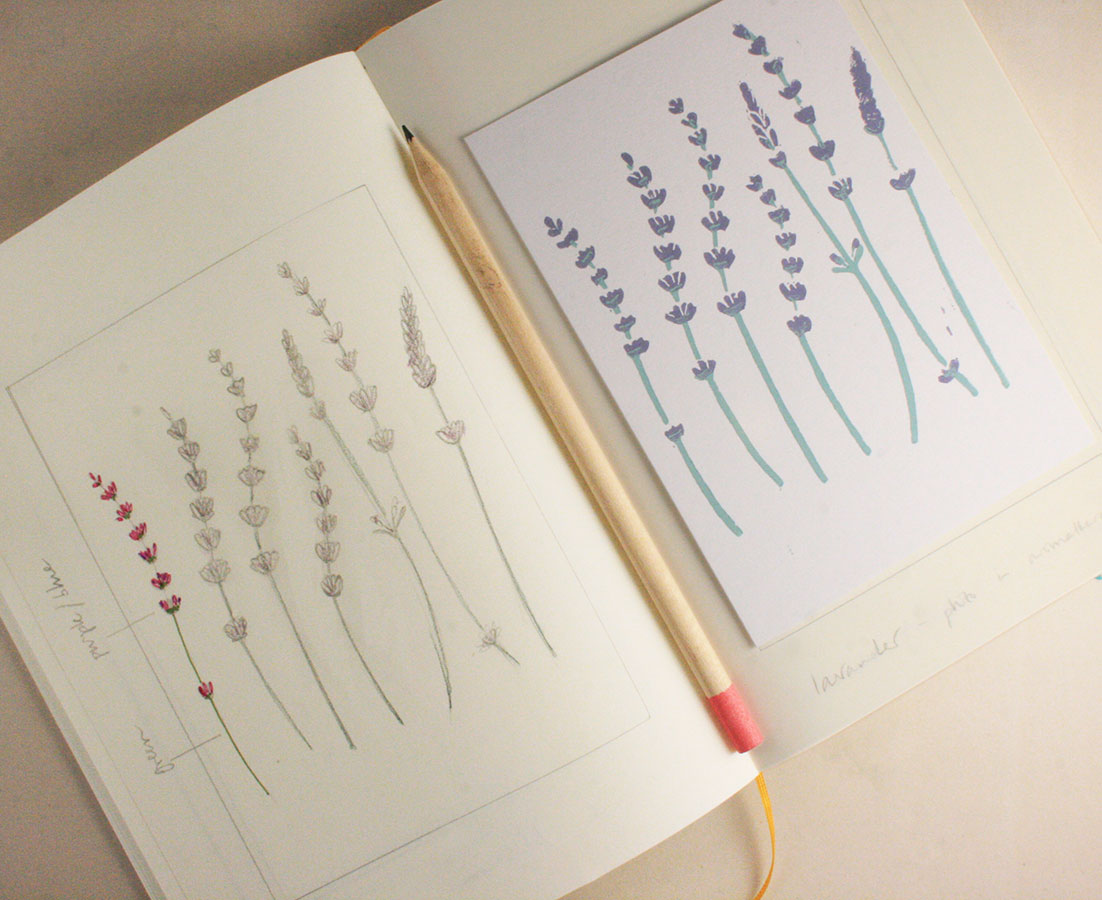 purple/blue
green
lavander - photo